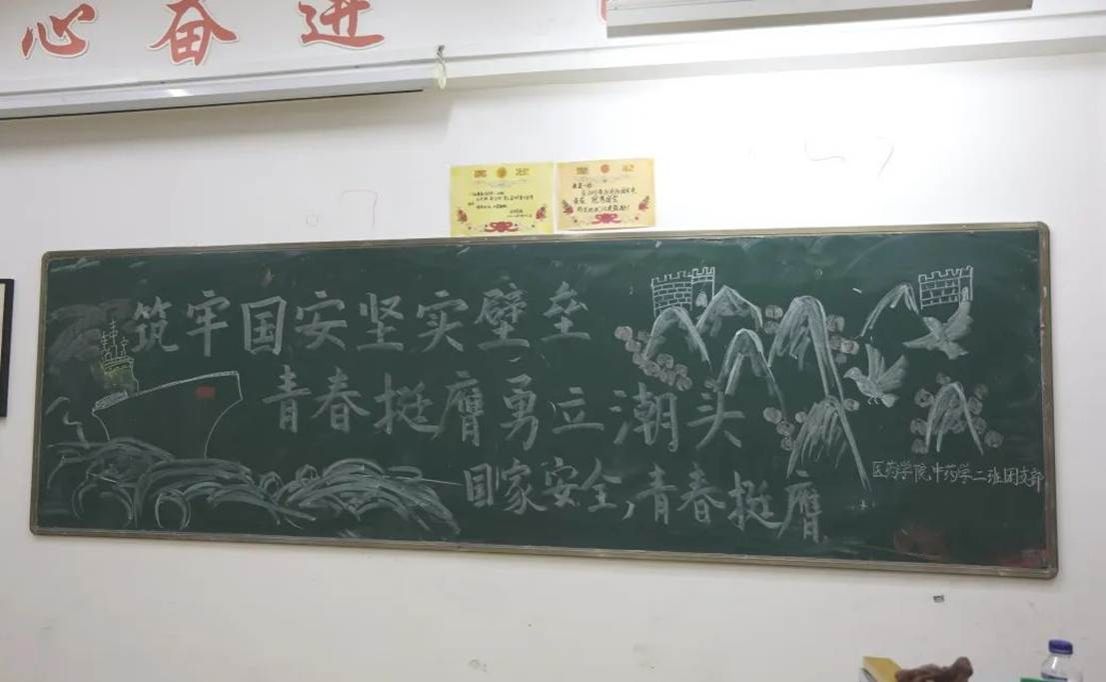 心奋进
奖状
筑牢国安坚实壁垒
青春挺膺勇立潮头
国家安全,青春挺膺
医药学院中药学二班团支部